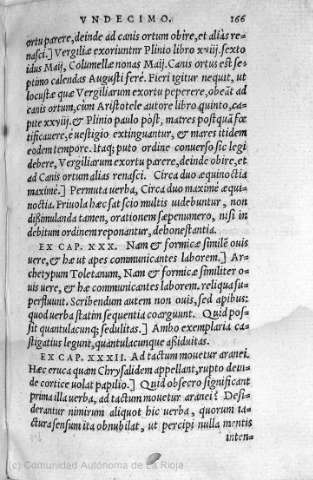 VNDECIMO. 166
ortu parere, deinde ad canis ortum obire, et alias re-
nasci.] Vergiliæ exoriuntur Plinio libro xviij. sexto
idus Maij, Columellæ nonas Maij. Canis ortus est se-
ptimo calendas Augusti ferè. Fieri igitur nequit, ut
locustæ quæ Vergiliarum exortu peperere, obeāt ad
canis ortum, cùm Aristotele autore libro quinto, ca-
pite xxviij, & Plinio paulo pòst, matres postquā fœ
tificauere, è uestigio extinguantur, & mares itidem
eodem tempore. Itaq; puto ordine conuerso sic legi
debere, Vergiliarum exortu parere, deinde obire, et
ad Canis ortum alias renasci. Circa duo æquinoctia
maximè.] Permuta uerba, Circa duo maximè æqui-
noctia. Friuola hæc sat scio multis uidebuntur, non
dissimulanda tamen, orationem sæpenumero, nisi in
debitum ordinem reponantur, dehonestantia.
EX CAP. XXX. Nam & formicæ similē ouis
uere, & hæ ut apes communicantes laborem.] Ar-
chetypum Toletanum, Nam & formicæ similiter o-
uis uere, & hæ communicantes laborem, reliqua su-
perfluunt. Scribendum autem non ouis, sed apibus:
quod uerba statim sequentia coarguunt. Quid pos-
sit quantulacunq; sedulitas.] Ambo exemplaria ca-
stigatius legunt, quantulacunque assiduitas.
EX CAP. XXXII. Ad tactum mouetur aranei.
Hæc eruca quam Chrysalidem appellant, rupto dein-
de cortice uolat papilio.] Quid obsecro significant
prima illa uerba, ad tactum mouetur aranei? Desi-
derantur nimirum aliquot hic uerba, quorum ia-
ctura sensum ita obnubilat, ut percipi nulla mentis
inten-
(c) Comunidad Autónoma de La Rioja